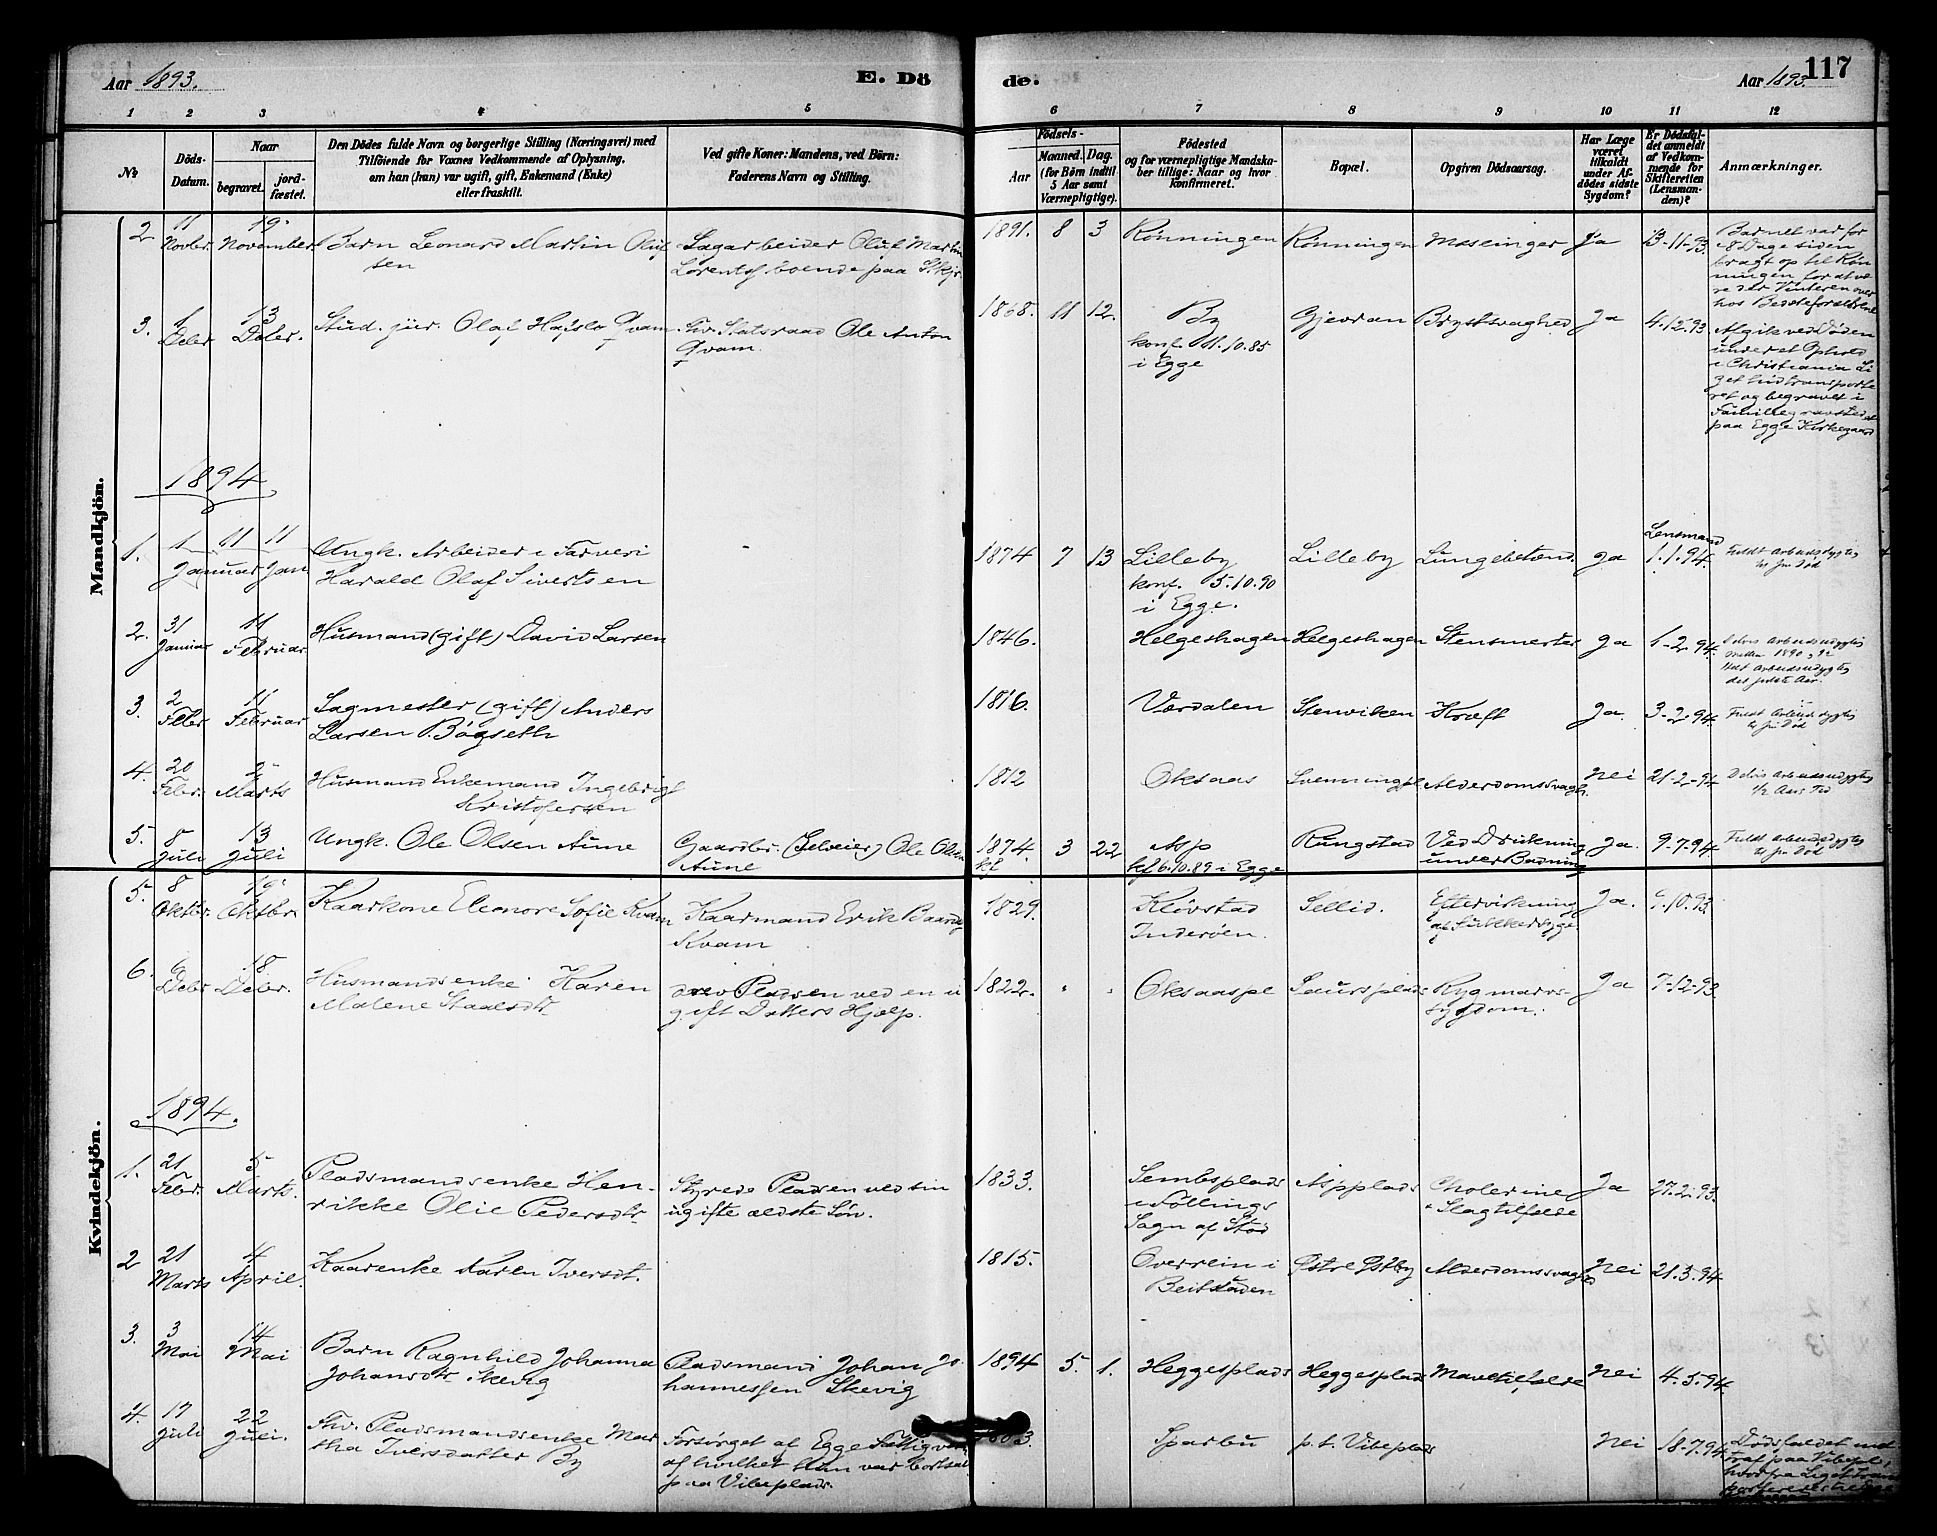 Aar 1893. E. Dö de. Aar 1893. 117
1 2 3 4 5 6 7 8 9 10 11 12
No
Döds-Datum.
Naar
begravet.
jordfæstet.
Den Dödes fulde Navn og borgerlige Stilling (Næringsvei) med
Tilföiende for Voxnes Vedkommende af Oplysning,
om han (hun) var ugift, gift, Enkemand (Enke)
eller fraskilt.
Ved gifte Koner: Mandens, ved Börn:
Faderens Navn og Stilling.
Födsels-
Aar
Maaned. Dag.
(for Börn indtil
5 Aar samt
Værnepligtige).
Födested
og for værnepligtige Mandska-
ber tillige: Naar og hvor
konfirmeret.
Bopæl.
Opgiven Dödsaarsag.
Har Læge
været
tilkaldt
under Af-
dödes sidste
Sygdom?
Er Dödsfal-
det anmeldt
af Vedkom-
mende for
Skifteretten
(Lensman-
den)?
Anmærkninger.
Mandkjön.
2 11 Novbr. 19 November
Barn Leonard Martin Oluf
sen
Sagarbeider Oluf Martin
Lorents boende paa
1891. 8 3 Rønningen Rønningen Meslinger Ja 13-11-93.
Barnet var for
8 Dage siden
bragt op til Røn
ningen for at væ
re der Vinteren over
hos Bedsteforældrene
3. 1 Debr 13 Debr.
Stud. jur. Olaf Hafslo Qvam
Fhv. Statsraad Ole Anton
Qvam.
1868. 11 12. By
konf. 11.10.85
i Egge
Gjevran Brystsvaghed Ja 4.12.93.
Afgik ved Døden
under et Ophold
i Christiania Li
get hidtransporte
ret og begravet i
Familiegravstedet
paa Egge Kirkegaard
1894
1. 1 Januar 11 11 Jan
Ungk. Arbeider i Farveri
Harald Olaf Sivertsen
1874 7 13 Lilleby
konf. 5.10.90
i Egge.
Lilleby Lungebetænd. Ja Lensmand
1.1.94.
Fuldt arbeidsdygtig
til sin Død
2. 31 Januar 11 Februar
Husmand (gift) David Larsen
1846. Helgeshagen Helgeshagen Stensmerter Ja 1-2-94.
Delvis arbeidsudygtig
mellem 1890 92
Helt arbeidsudygtig
det sidste Aar.
3. 2 Febr 11 Februar
Sagmester (gift) Anders
Larsen Bøgseth
1816. Værdalen Stenviken Kræft Ja. 3-2-94.
Fuldt arbeidsdygtig
til sin Død
4. 20 Febr. 2 Marts
Husmand Enkemand Ingebrigt
Kristofersen
1812 Oksaas Svenningpl. Alderdomssvagh. Nei 21-2-94
Delvis arbeidsudygtig
1/2 Aars Tid
5. 8 Juli 13 Juli
Ungk. Ole Olsen Aune
Gaardbr. (Selveier) Ole Olsen
Aune
1874. 3 22 Asp
kf 6.10.89 i Egge
Rungstad Ved Drukning
under Badning
Ja. 9-7-94.
Fuldt arbeidsdygtig
til sin Død
Kvindekjön.
5. 8 Oktbr. 19 Oktbr
Kaarkone Eleonore Sofie Kvam
Kaarmand Erik Baards
Kvam
1829. Kløvstad
Inderøen.
Sellid. Eftervirkning
af Sukkersyge
Ja. 9.10.93.
6. 6 Debr 18 Debr.
Husmandsenke Karen
Malene Staalsdtr
drev Pladsen ved en u
gift Datters Hjælp.
1822. " " Oksaaspl Saursplads Rygmarvs-
sygdom.
Ja 7-12-93.
1894.
1. 21 Febr. 5 Marts.
Pladsmandsenke Hen-
rikke Olie Pedersdtr
Styrede Pladsen ved sin
ugifte ældste Søn.
1833. Sembsplads
i Føllings
Sogn af Stod
Aspplads Cholerine
& Slagtilfælde
Ja 27.2.93.
2 21 Marts 4 April.
Kaarenke Karen Iversdt.
1815. Overrein i
Beitstaden
Østre Østby Alderdomssvaghed Nei 21.3.94.
3. 3 Mai 14 Mai
Barn Ragnhild Johanna
Johansdtr Skevig
Pladsmand Johan Jo
hannessen Skevig
1894 5. 1. Heggesplads Heggesplads Mavetilfælde Nei 4.5.94.
4. 17 Juli 22 Juli.
Fhv. Pladsmandsenke Mar
tha Iversdatter By
Forsørget af Egge Fattigv
af hvilket hun var bortsat
paa Vibeplads.
1803. Sparbu p.t. Vibeplads Nei 18.7.94.
Dødsfaldet ind
traf paa Vibepl.,
hvorfra Liget